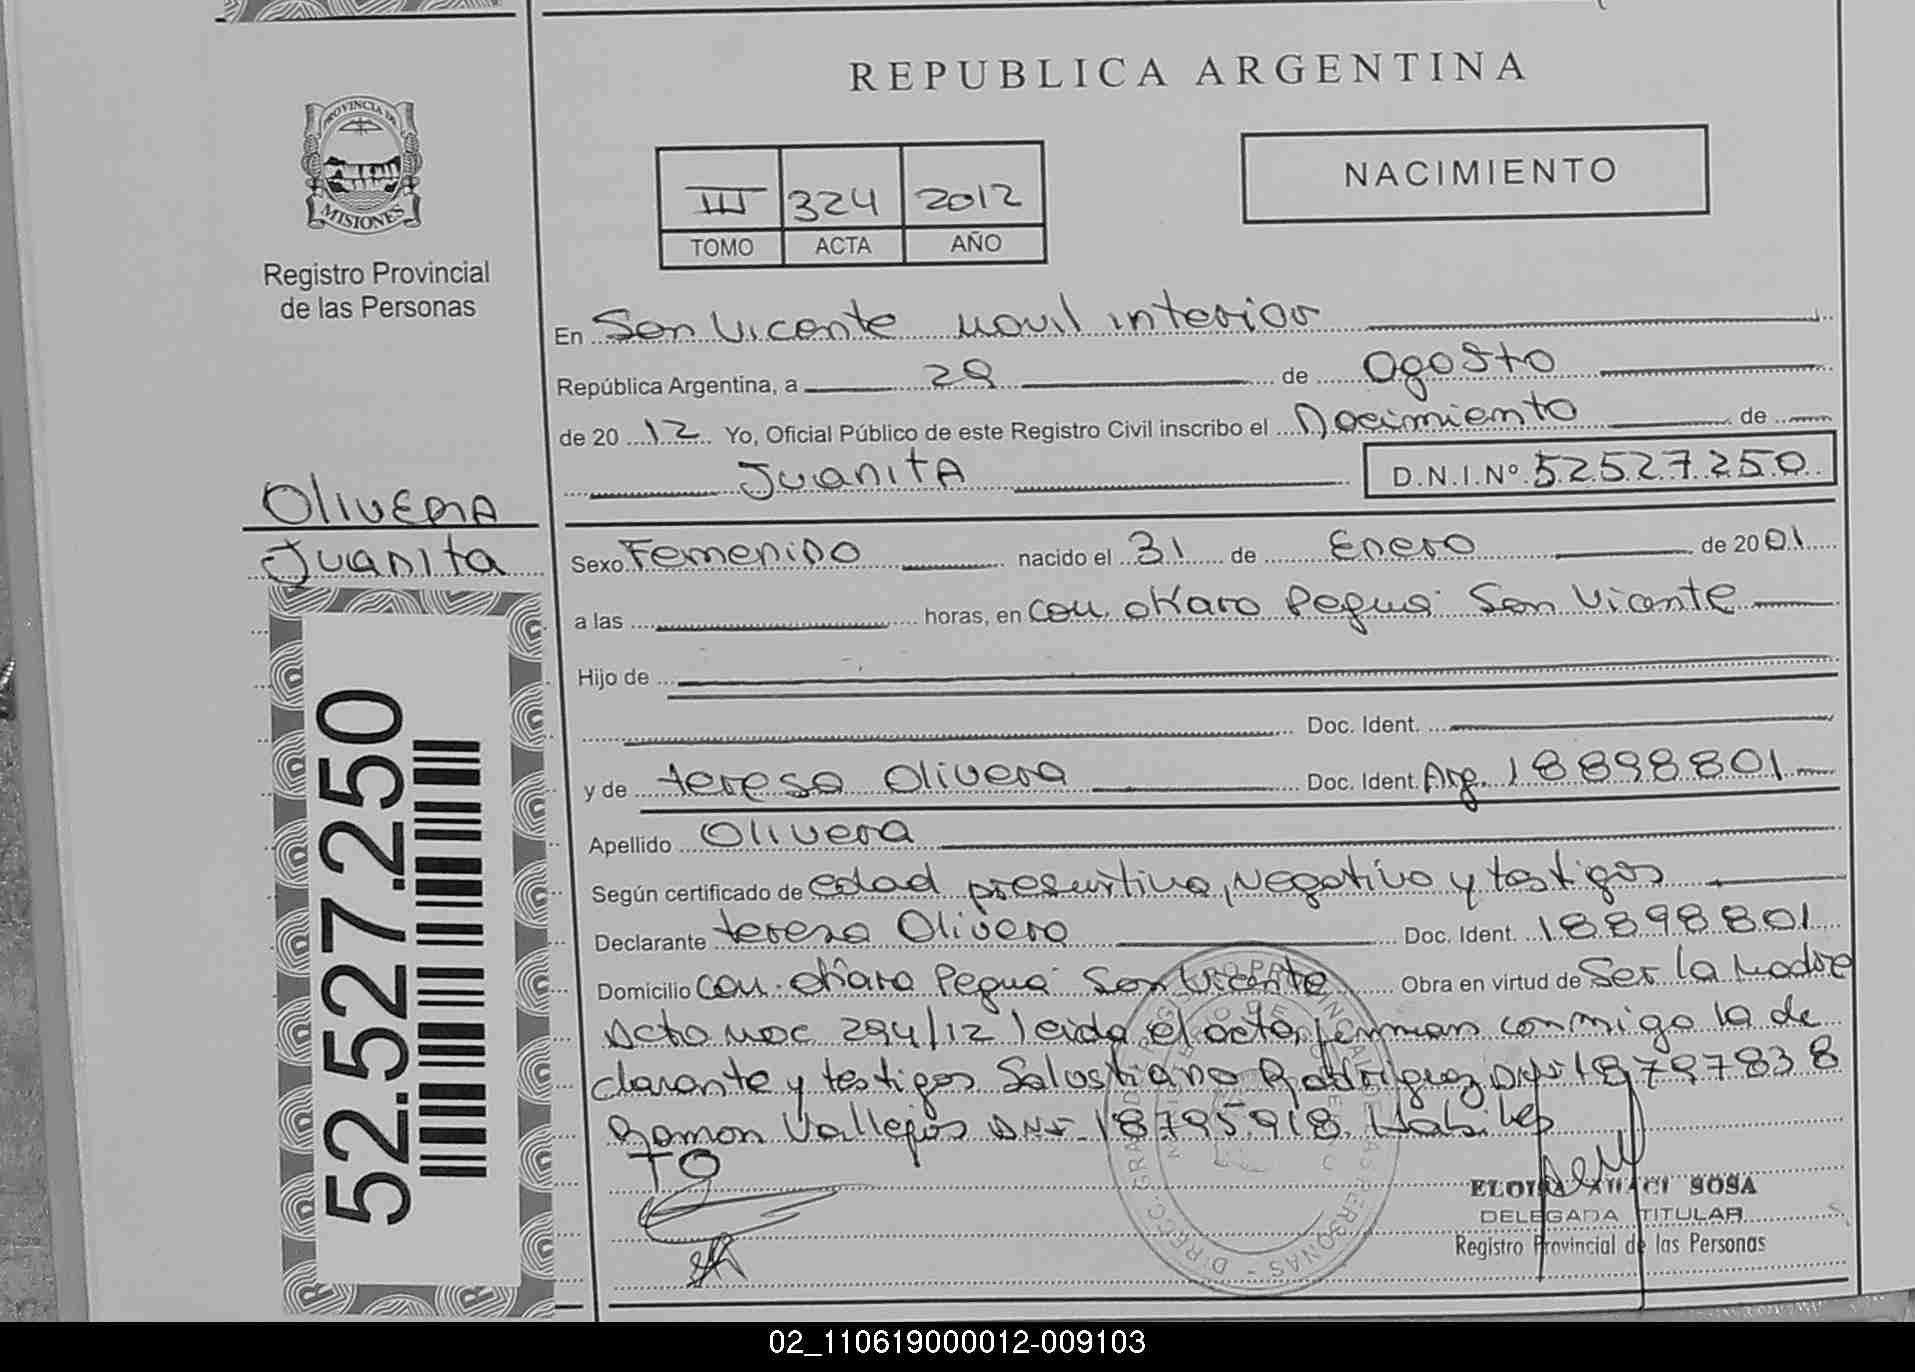 REPUBLICA ARGENTINA
PROVINCIA DE
MISIONES
Registro Provincial
de las Personas
III 324 2012
TOMO ACTA AÑO
NACIMIENTO
En San Vicente movil interior
República Argentina, a 29 de agosto
de 2012 Yo, Oficial Público de este Registro Civil inscribo el Nacimiento de
Juanita D.N.I.Nº 52527250
OlivERA
Juanita
52.527.250
Sexo Femenino nacido el 31 de Enero de 2001
a las horas, en Com. okaro Pegua San Vicente
Hijo de
Doc. Ident.
y de teresa Olivera Doc. Ident. Arg. 18898801
Apellido Olivera
Según certificado de edad presuntiva, Negativo y testigos
Declarante teresa Olivera Doc. Ident. 18898801
Domicilio Com. okara Pegua San Vicente Obra en virtud de Ser la Madre
Acta 294/12 leida el acta, firman conmigo la de
clarante y testigos Salustiano Rodriguez DNI 18797838
Ramon Vallejos DNI 18795918 Habiles
TO
SOSA
DELEGADA TITULAR
Registro Provincial de las Personas
02_110619000012-009103